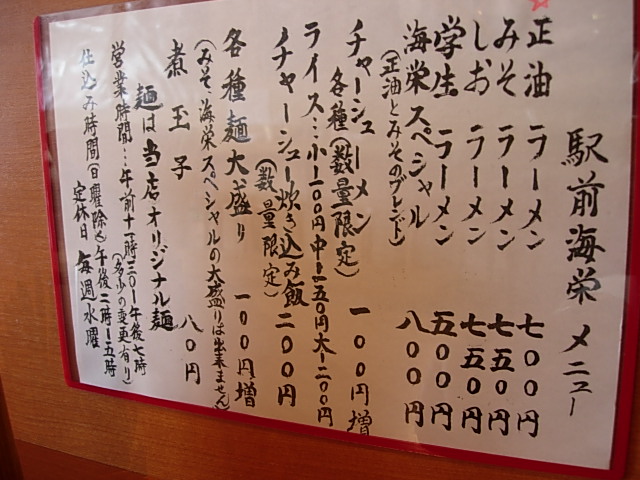 駅前海栄 メニュー
正油 ラーメン 七〇〇円
みそ ラーメン 七五〇円
しお ラーメン 七五〇円
学生 ラーメン 五〇〇円
海栄スペシャル 八〇〇円
(正油とみそのブレンド)
チャーシューメン 一〇〇円増
各種(数量限定)
ライス…小一〇〇円中一五〇円大二〇〇円
チャーシュー炊き込み飯 二〇〇円
(数量限定)
各種麺大盛り 一〇〇円増
(みそ、海栄スペシャルの大盛りは出来ません)
煮玉子 八〇円
麺は当店オリジナル麺
営業時間…午前十一時三〇〜午後七時
(多少の変更有り)
仕込み時間(日曜除く)午後二時〜五時
定休日 毎週水曜